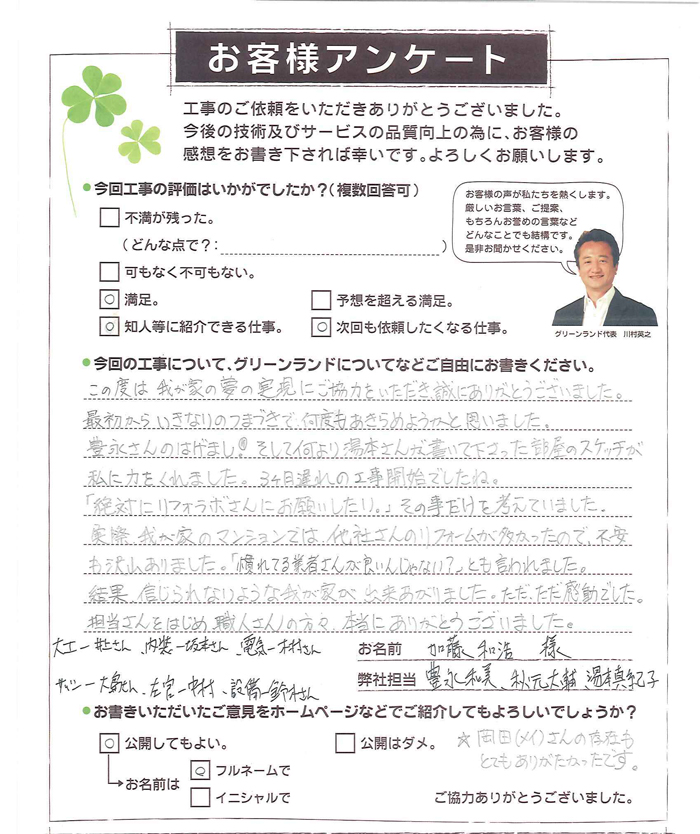 お客様アンケート
工事のご依頼をいただきありがとうございました。
今後の技術及びサービスの品質向上の為に、お客様の
感想をお書き下されば幸いです。よろしくお願いします。
●今回工事の評価はいかがでしたか？（複数回答可）
不満が残った。
（どんな点で？：　）
可もなく不可もない。
○ 満足。
予想を超える満足。
○ 知人等に紹介できる仕事。
○ 次回も依頼したくなる仕事。
お客様の声が私たちを熱くします。
厳しいお言葉、ご提案、
もちろんお誉めの言葉など
どんなことでも結構です。
是非お聞かせください。
グリーンランド代表　川村英之
●今回の工事について、グリーンランドについてなどご自由にお書きください。
この度は 我が家の夢の実現にご協力をいただき誠にありがとうございました。
最初から いきなりのつまづきで、何度もあきらめようかと思いました。
豊永さんのはげまし！そして何より湯本さんが書いて下さった部屋のスケッチが
私に力をくれました。3ヶ月遅れの工事開始でしたね。
「絶対にリフォラボさんにお願いしたい。」その事だけを考えていました。
実際、我が家のマンションでは、他社さんのリフォームが多かったので、不安
も沢山ありました。「慣れてる業者さんが良いんじゃない？」とも言われました。
結果、信じられないような我が家が、出来あがりました。ただ、ただ感動でした。
担当さんをはじめ、職人さんの方々、本当にありがとうございました。
大工ー井上さん、内装ー坂本さん、電気ー木村さん
サッシー大島さん、左官ー中村、設備ー鈴木さん
お名前　加藤 和浩　様
弊社担当　豊永和美、秋元大輔、湯本真紀子
●お書きいただいたご意見をホームページなどでご紹介してもよろしいでしょうか？
○ 公開してもよい。
公開はダメ。
→お名前は
○ フルネームで
イニシャルで
☆ 岡田（メイ）さんの存在も
とてもありがたかったです。
ご協力ありがとうございました。